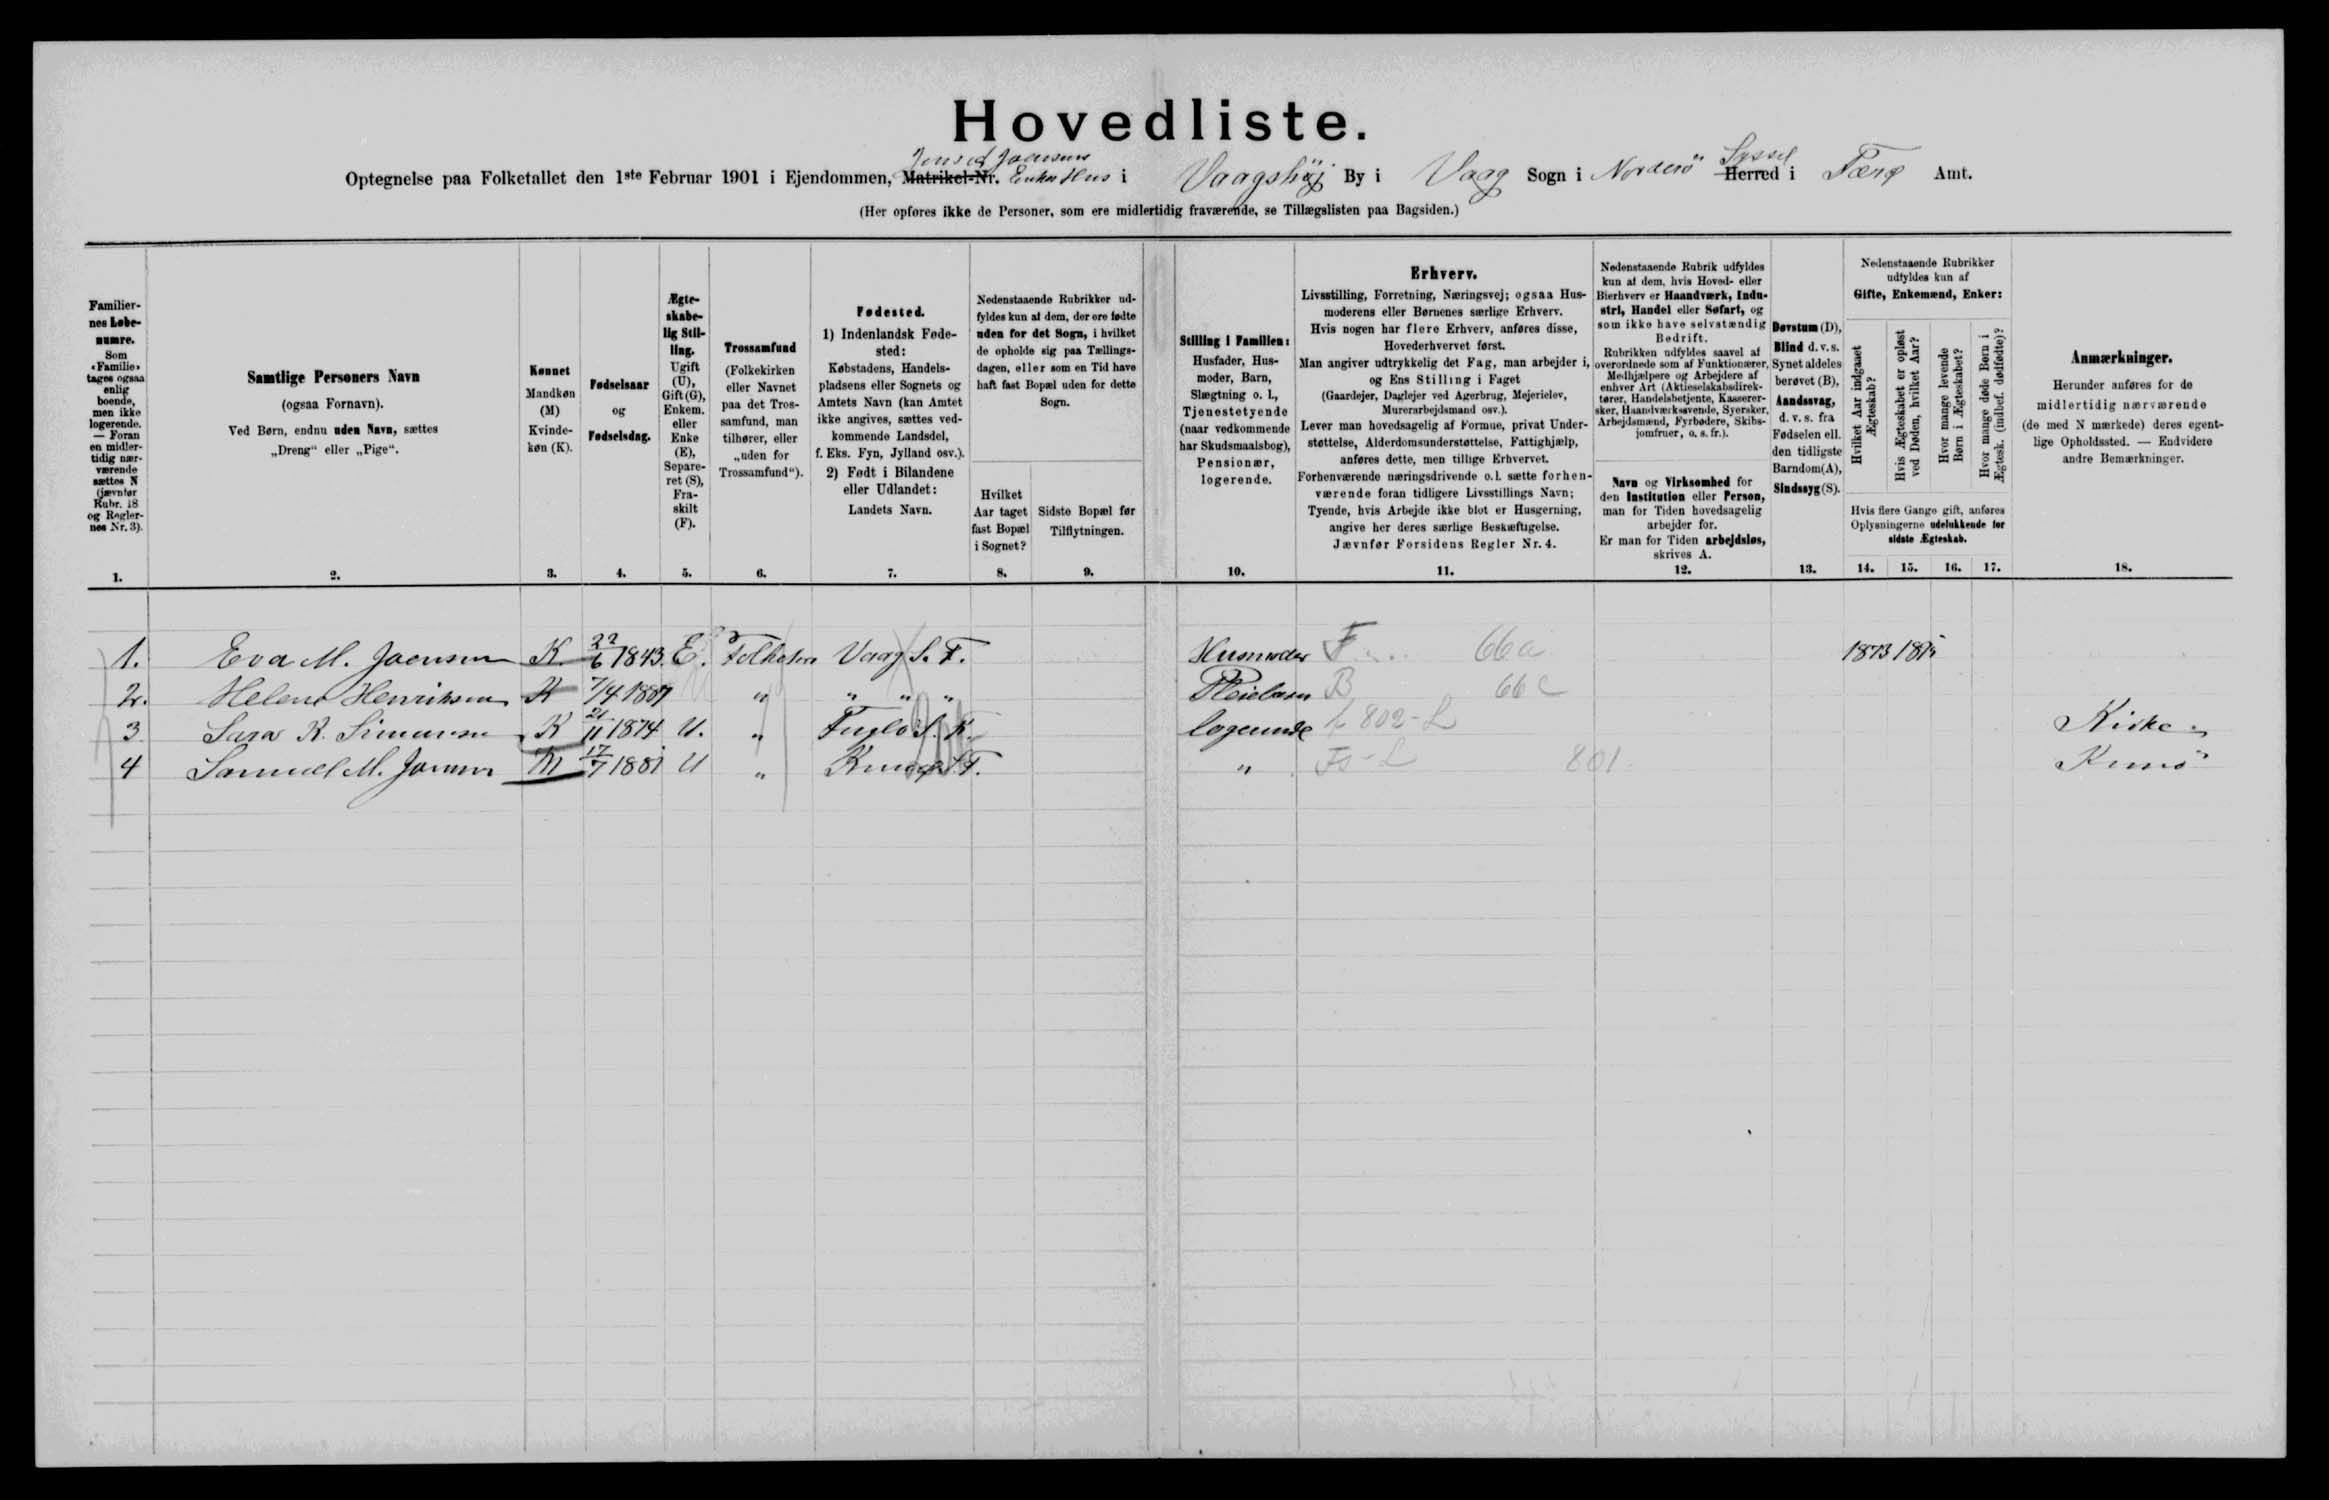 Hovedliste.
Jens d Joensens
Syssel
Optegnelse paa Folketallet den 1ste Februar 1901 i Ejendommen, Matrikel-Nr. Enkes Hus i Vaagshöj By i Vaag Sogn i Norderö Herred i Færø Amt.
(Her opføres ikke de Personer, som ere midlertidig fraværende, se Tillægslisten paa Bagsiden.)
Familier-
nes Løbe-
numre.
Som
«Familie»
tages ogsaa
enlig
boende,
men ikke
logerende.
— Foran
en midler-
tidig nær-
værende
sættes N
(jævnfør
Rubr. 18
og Regler-
nes Nr. 3).
1.
Samtlige Personers Navn
(ogsaa Fornavn).
Ved Børn, endnu uden Navn, sættes
„Dreng“ eller „Pige“.
2.
Kønnet
Mandkøn
(M)
Kvinde-
køn (K).
3.
Fødselsaar
og
Fødselsdag.
4.
Ægte-
skabe-
lig Stil-
ling.
Ugift
(U),
Gift (G),
Enkem.
eller
Enke
(E),
Separe-
ret (S),
Fra-
skilt
(F).
5.
Trossamfund
(Folkekirken
eller Navnet
paa det Tros-
samfund, man
tilhører, eller
„uden for
Trossamfund“).
6.
Fødested.
1) Indenlandsk Føde-
sted:
Købstadens, Handels-
pladsens eller Sognets og
Amtets Navn (kan Amtet
ikke angives, sættes ved-
kommende Landsdel,
f. Eks. Fyn, Jylland osv.).
2) Født i Bilandene
eller Udlandet:
Landets Navn.
7.
Nedenstaaende Rubrikker ud-
fyldes kun af dem, der ere fødte
uden for det Sogn, i hvilket
de opholde sig paa Tællings-
dagen, eller som en Tid have
haft fast Bopæl uden for dette
Sogn.
Hvilket
Aar taget
fast Bopæl
i Sognet?
8.
Sidste Bopæl før
Tilflytningen.
9.
Stilling i Familien:
Husfader, Hus-
moder, Barn,
Slægtning o. l.,
Tjenestetyende
(naar vedkommende
har Skudsmaalsbog),
Pensionær,
logerende.
10.
Erhverv.
Livsstilling, Forretning, Næringsvej; ogsaa Hus-
moderens eller Børnenes særlige Erhverv.
Hvis nogen har flere Erhverv, anføres disse,
Hovederhvervet først.
Man angiver udtrykkelig det Fag, man arbejder i,
og Ens Stilling i Faget
(Gaardejer, Daglejer ved Agerbrug, Mejerielev,
Murerarbejdsmand osv.).
Lever man hovedsagelig af Formue, privat Under-
støttelse, Alderdomsunderstøttelse, Fattighjælp,
anføres dette, men tillige Erhvervet.
Forhenværende næringsdrivende o. l. sætte forhen-
værende foran tidligere Livsstillings Navn;
Tyende, hvis Arbejde ikke blot er Husgerning,
angive her deres særlige Beskæftigelse.
Jævnfør Forsidens Regler Nr. 4.
11.
Nedenstaaende Rubrik udfyldes
kun af dem, hvis Hoved- eller
Bierhverv er Haandværk, Indu-
stri, Handel eller Søfart, og
som ikke have selvstændig
Bedrift.
Rubrikken udfyldes saavel af
overordnede som af Funktionærer,
Medhjælpere og Arbejdere af
enhver Art (Aktieselskabsdirek-
tører, Handelsbetjente, Kasserer-
sker, Haandværkssvende, Syersker,
Arbejdsmænd, Fyrbødere, Skibs-
jomfruer, o. s. fr.).
Navn og Virksomhed for
den Institution eller Person,
man for Tiden hovedsagelig
arbejder for.
Er man for Tiden arbejdsløs,
skrives A.
12.
Døvstum (D),
Blind d. v. s.
Synet aldeles
berøvet (B),
Aandssvag,
d. v. s. fra
Fødselen ell.
den tidligste
Barndom (A),
Sindssyg (S).
13.
Nedenstaaende Rubrikker
udfyldes kun af
Gifte, Enkemænd, Enker:
Hvilket Aar indgaaet
Ægteskab?
Hvis Ægteskabet er opløst
ved Døden, hvilket Aar?
Hvor mange levende
Børn i Ægteskabet?
Hvor mange døde Børn i
Ægtesk. (indbef. dødfødte)?
Hvis flere Gange gift, anføres
Oplysningerne udelukkende for
sidste Ægteskab.
14. 15. 16. 17.
Anmærkninger.
Herunder anføres for de
midlertidig nærværende
(de med N mærkede) deres egent-
lige Opholdssted. — Endvidere
andre Bemærkninger.
18.
1. Eva M. Joensen K 22/6 1843 E. Folkekirk Vaag S. F. Husmoder F 66a 1873
2. Helene Henriksen K 7/4 1887 „ „ „ „ Pleiebarn B 66 c
3 Sara K. Simonsen K 21/11 1874 U. „ Fuglö S. F. logerende 802-L Kirke
4 Samuel M. Joensen M 17/7 1881 U „ Kunö S. F. „ Fs-L 801. Kunö